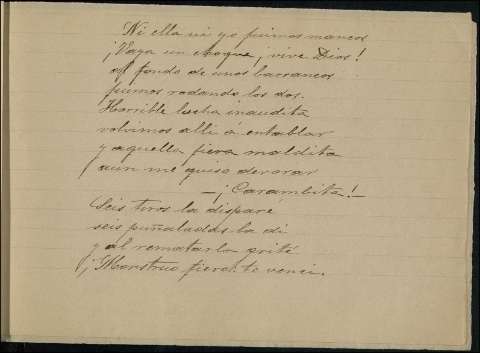 Ni ella ni yo fuimos mancos
¡Vaya un choque, ¡vive Dios!
al fondo de unos barrancos
fuimos rodando los dos.
Horrible lucha inaudita
volvimos alli á entablar
y aquella fiera maldita
aun me quiso devorar
—¡Carambita!—
Seis tiros la disparé
seis puñaladas la di
y al rematarla grité
¡Monstruo fiero te vencí.